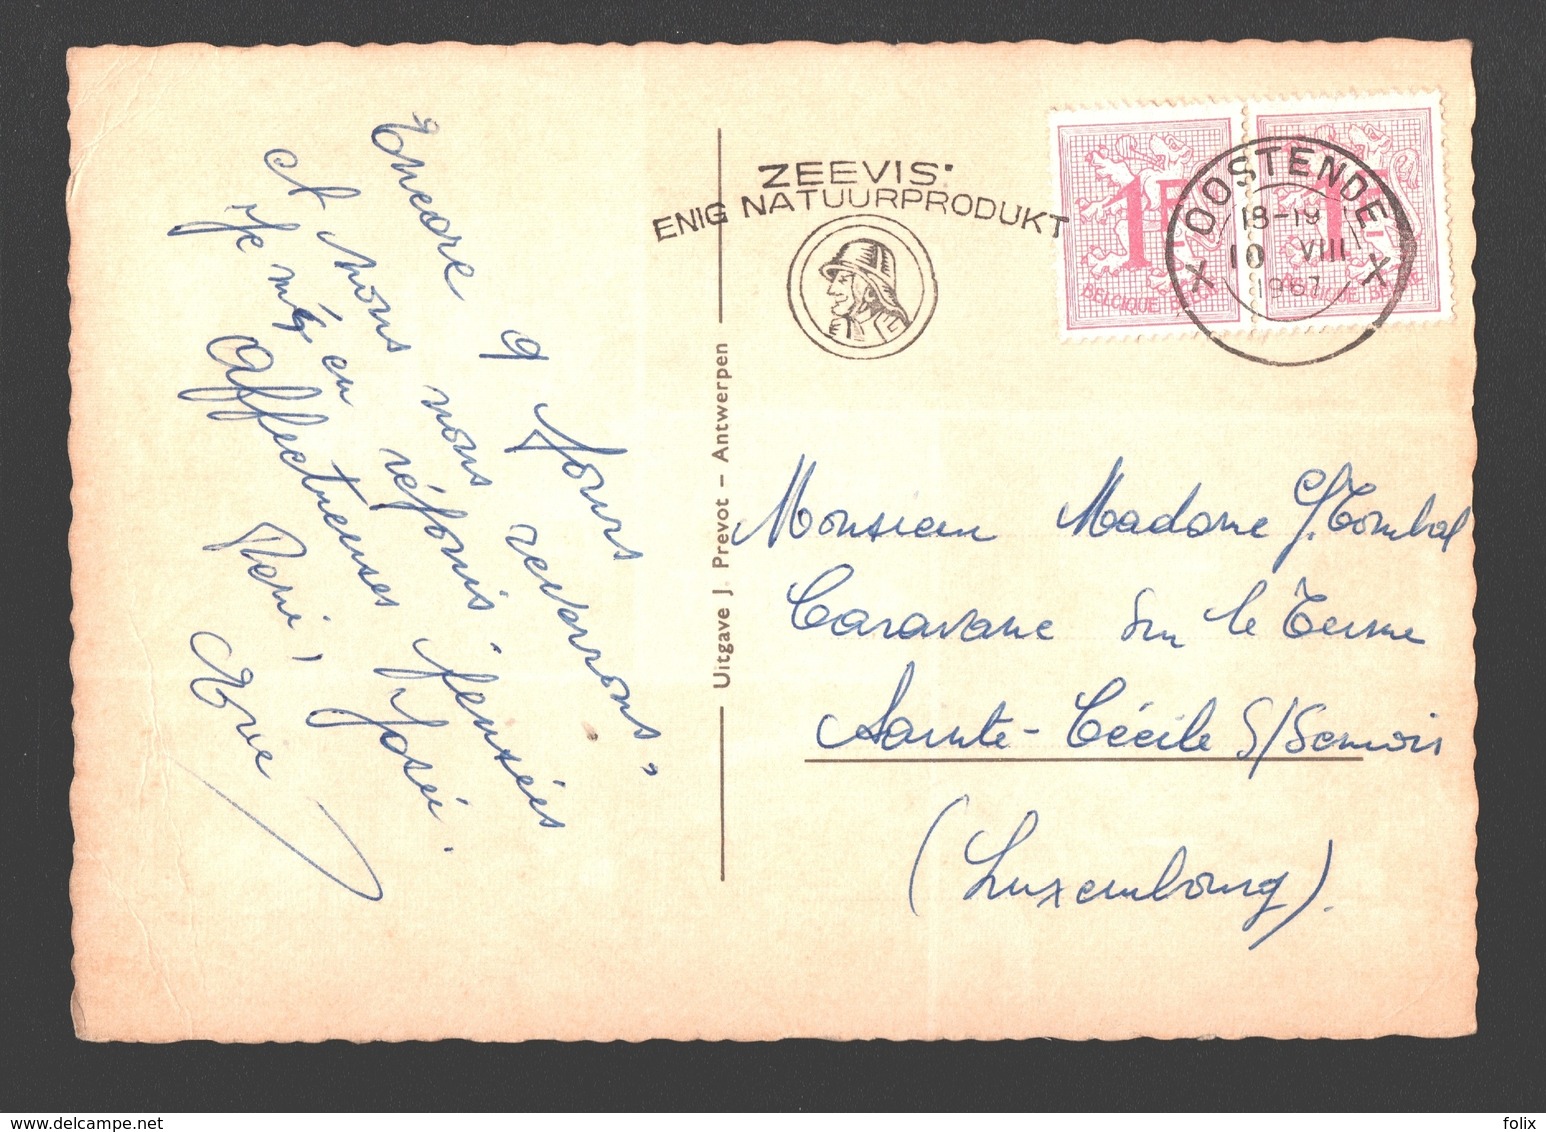 Encore 9 jours
et nous nous reverrons,
Je m'en réjouis.
Affectueuses pensées
Remi, José.
Eve
ZEEVIS:
ENIG NATUURPRODUKT
1F
BELGIQUE BELGIE
1F
BELGIQUE BELGIE
X OOSTENDE X
18-19
10 VIII
1967
Uitgave J. Prevot – Antwerpen
Monsieur Madame J. Tombal
Caravane Sur le Terme
Sainte-Cécile S/Semois
(Luxembourg).
www.delcampe.net
folix